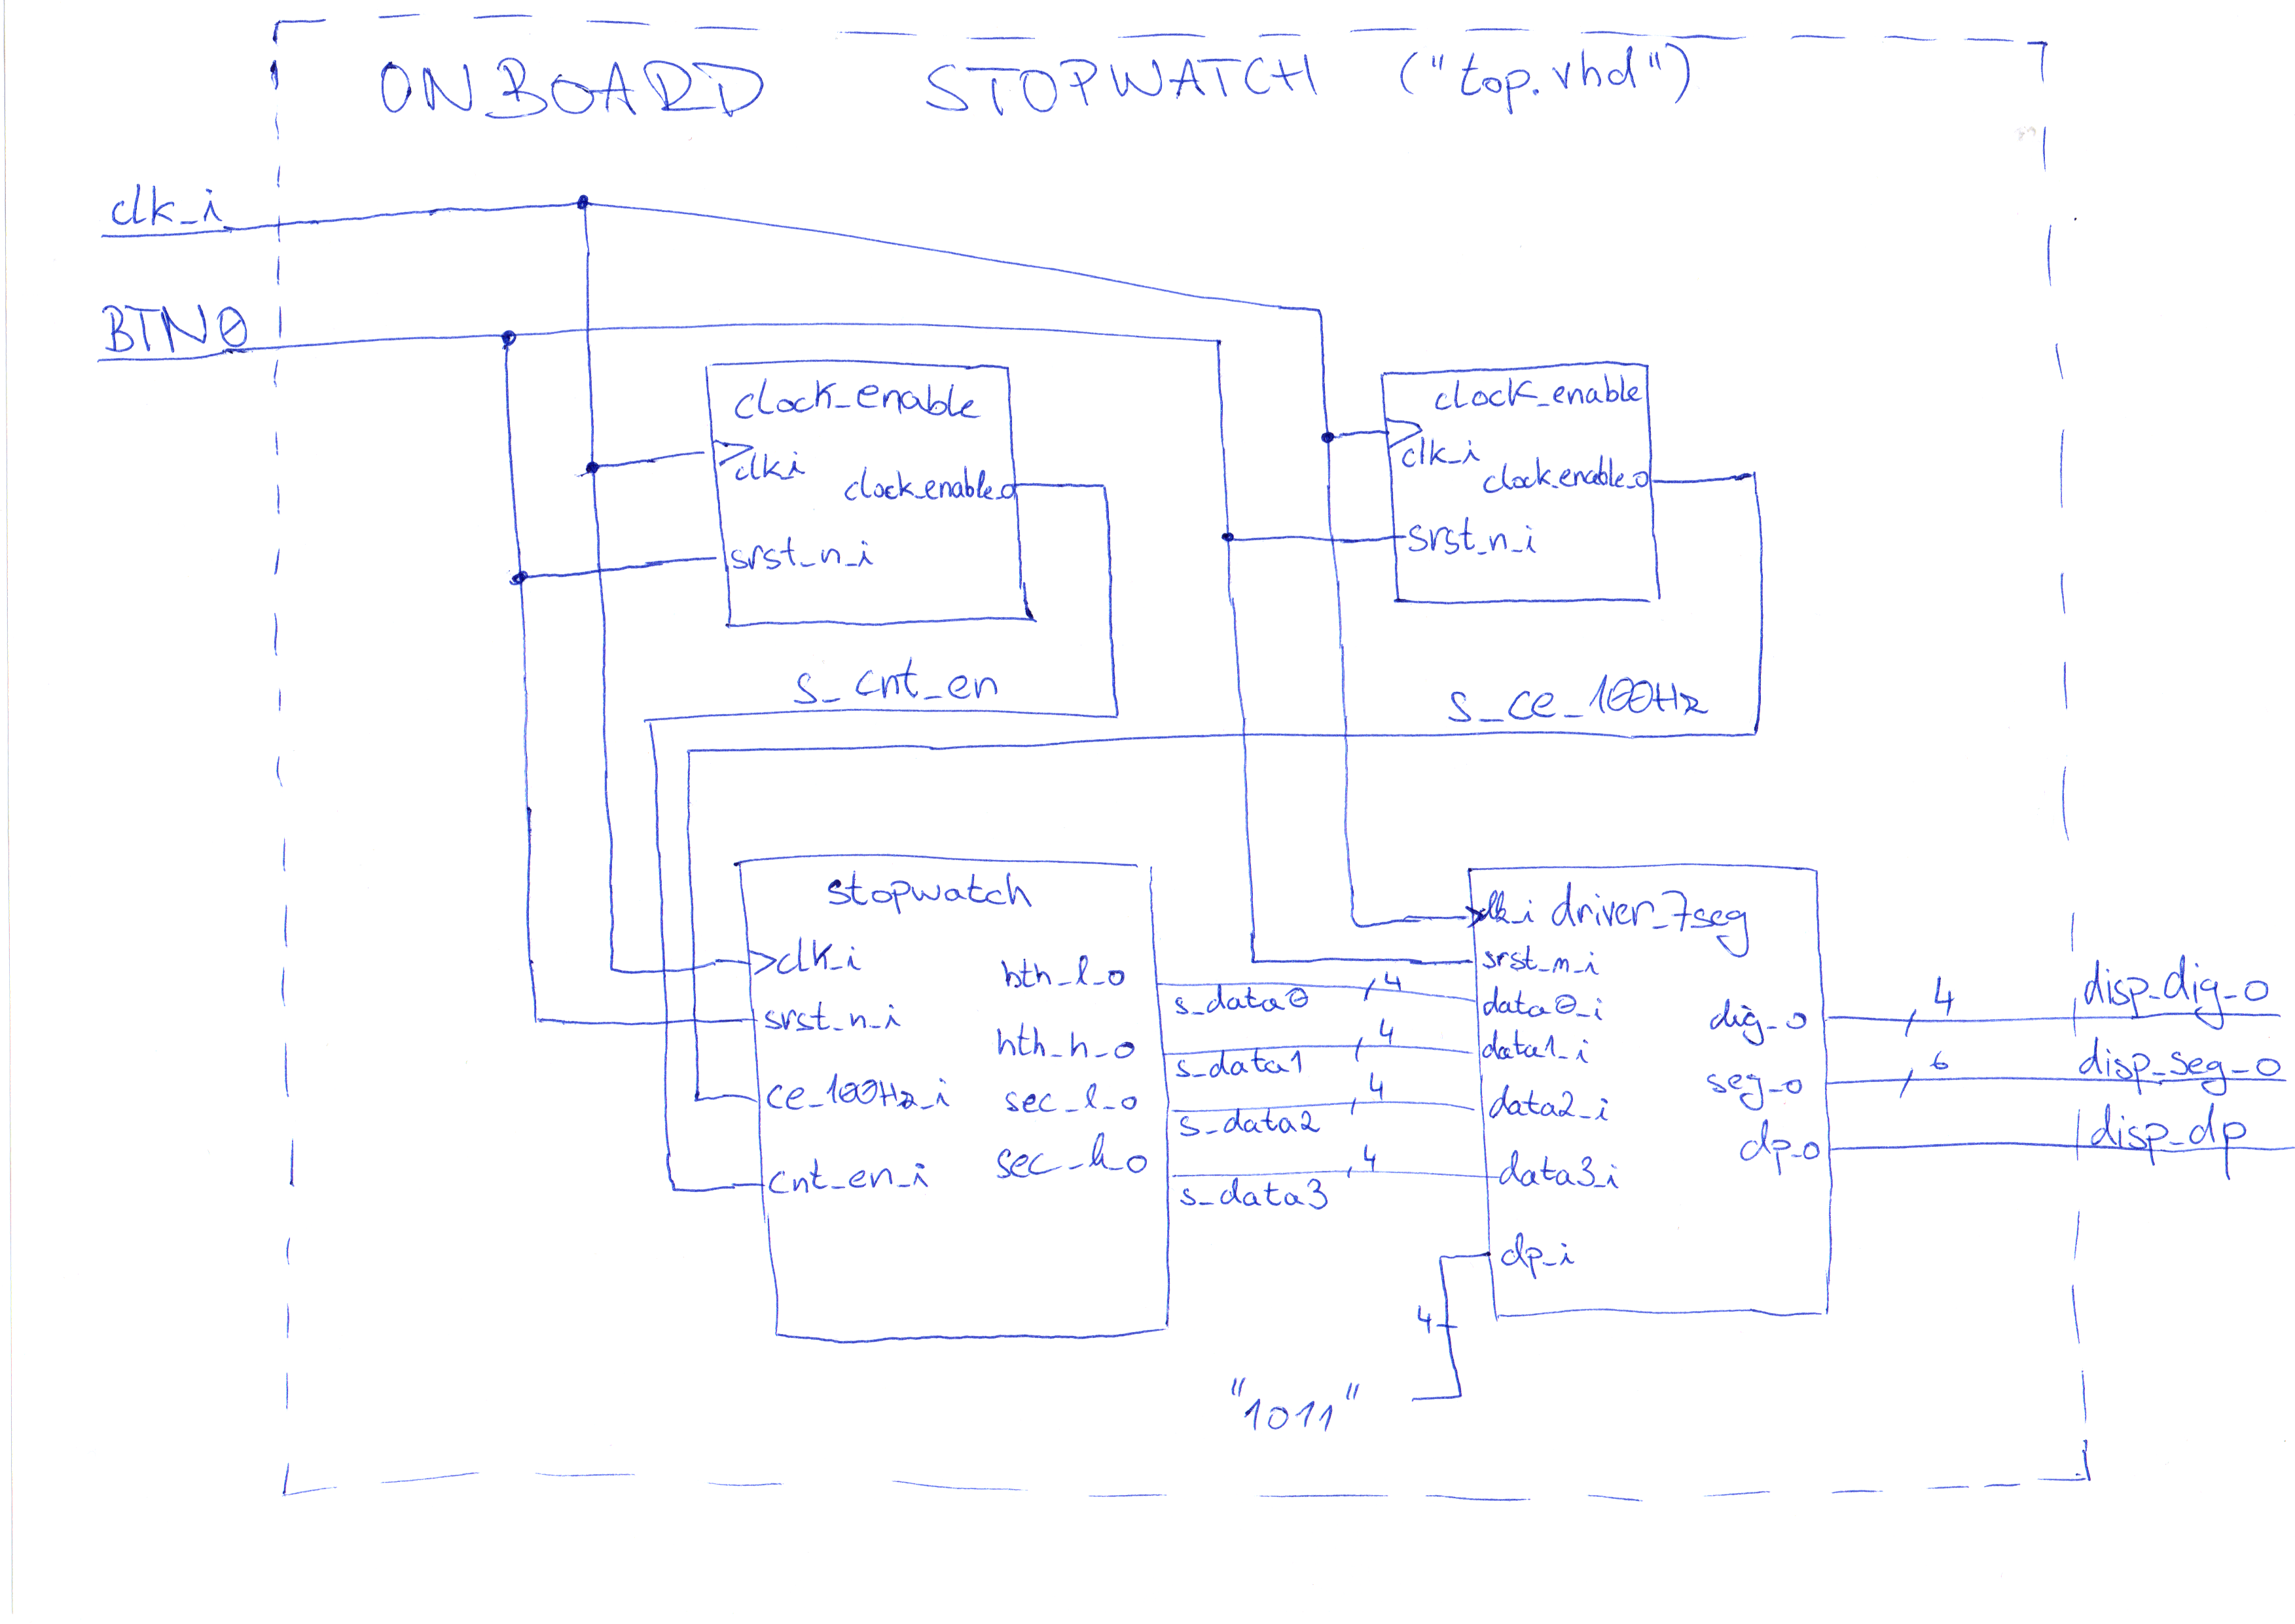 ONBOARD STOPWATCH ("top.vhd")
clk_i
BTN0
clock_enable
clk_i
clock_enable_o
srst_n_i
s_cnt_en
clock_enable
clk_i
clock_enable_o
srst_n_i
s_ce_100Hz
stopwatch
clk_i
srst_n_i
ce_100Hz_i
cnt_en_i
hth_l_o
hth_h_o
sec_l_o
sec_h_o
s_data0
4
s_data1
4
s_data2
4
s_data3
4
clk_i driver_7seg
srst_n_i
data0_i
data1_i
data2_i
data3_i
dp_i
4
"1011"
dig_o
seg_o
dp_o
4
disp_dig_o
6
disp_seg_o
disp_dp